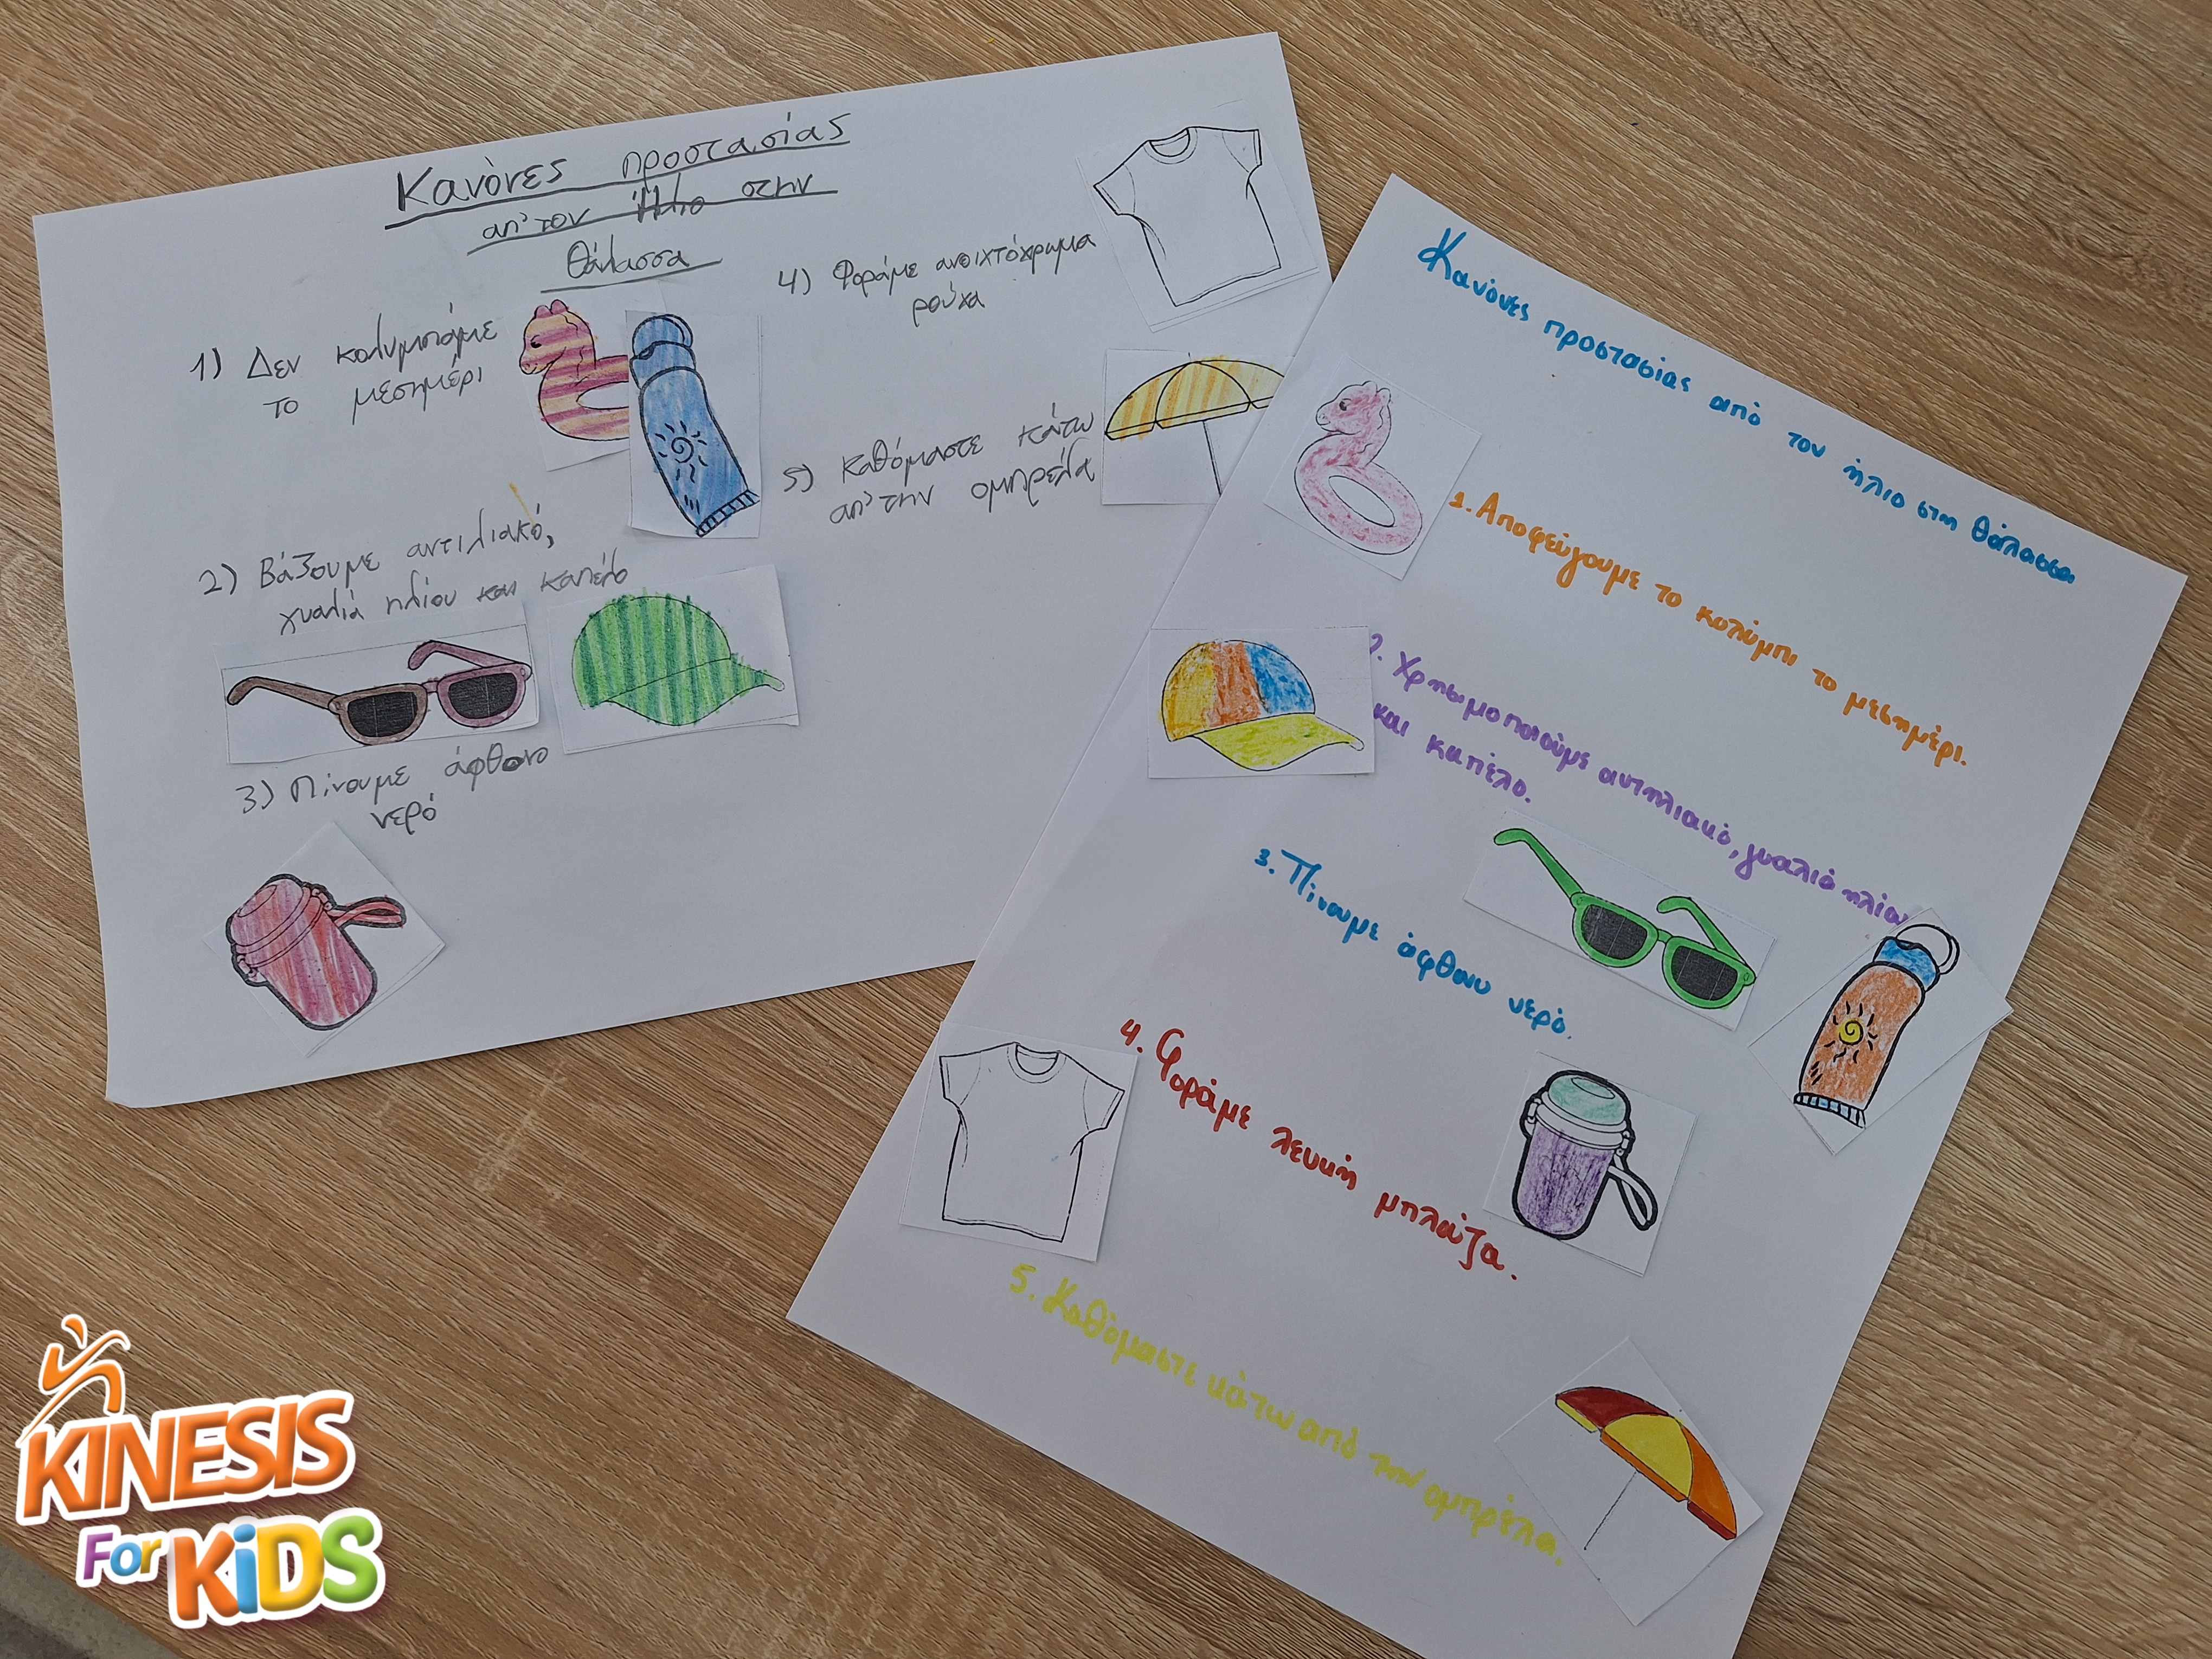 Κανόνες προστασίας
απ' τον Ήλιο στην
θάλασσα
1) Δεν κολυμπάμε
το μεσημέρι
2) Βάζουμε αντιλιακό,
γυαλιά ηλίου και καπέλο
3) Πίνουμε άφθονο
νερό
4) Φοράμε ανοιχτόχρωμα
ρούχα
5) Καθόμαστε κάτω
απ' την ομπρέλα
Κανόνες προστασίας από τον ήλιο στη θάλασσα
1. Αποφεύγουμε το κολύμπι το μεσημέρι.
2. Χρησιμοποιούμε αντηλιακό, γυαλιά ηλίου
και καπέλο.
3. Πίνουμε άφθονο νερό.
4. Φοράμε λευκή μπλούζα.
5. Καθόμαστε κάτω από την ομπρέλα.
KINESIS
For KiDS